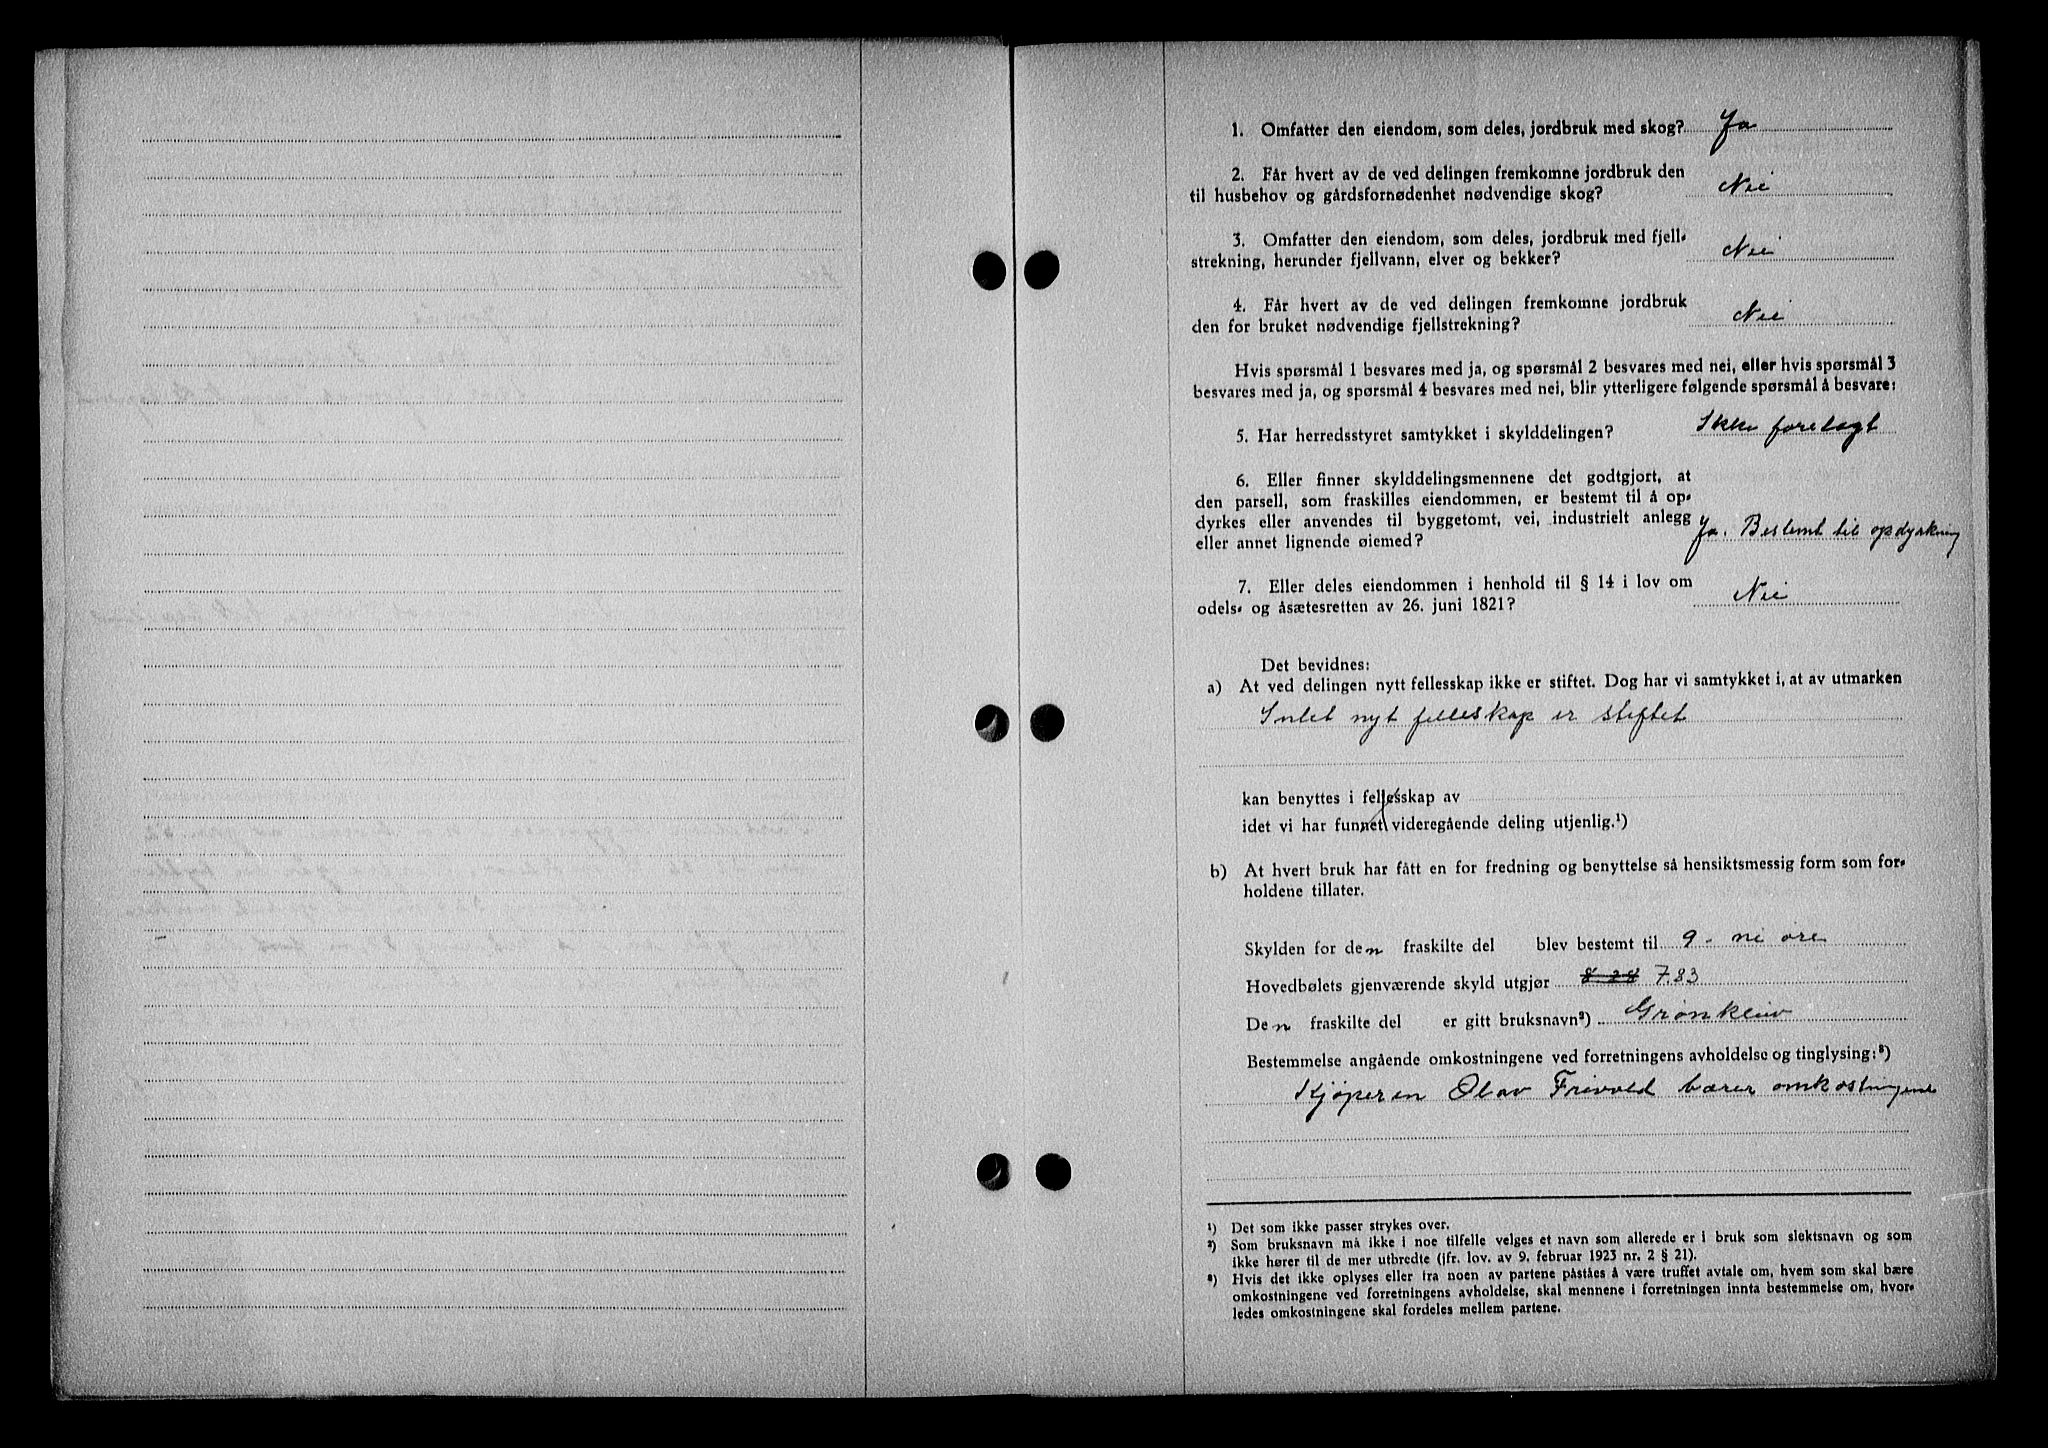 1. Omfatter den eiendom, som deles, jordbruk med skog? Ja
2. Får hvert av de ved delingen fremkomne jordbruk den
til husbehov og gårdsfornødenhet nødvendige skog? Nei
3. Omfatter den eiendom, som deles, jordbruk med fjell-
strekning, herunder fjellvann, elver og bekker? Nei
4. Får hvert av de ved delingen fremkomne jordbruk
den for bruket nødvendige fjellstrekning? Nei
Hvis spørsmål 1 besvares med ja, og spørsmål 2 besvares med nei, eller hvis spørsmål 3
besvares med ja, og spørsmål 4 besvares med nei, blir ytterligere følgende spørsmål å besvare:
5. Har herredsstyret samtykket i skylddelingen? Ikke foretagt
6. Eller finner skylddelingsmennene det godtgjort, at
den parsell, som fraskilles eiendommen, er bestemt til å op-
dyrkes eller anvendes til byggetomt, vei, industrielt anlegg
eller annet lignende øiemed? Ja. Bestemt til opdyrkning
7. Eller deles eiendommen i henhold til § 14 i lov om
odels- og åsætesretten av 26. juni 1821? Nei
Det bevidnes:
a) At ved delingen nytt fellesskap ikke er stiftet. Dog har vi samtykket i, at av utmarken
Intet nyt felleskap er stiftet
kan benyttes i fellesskap av
idet vi har funnet videregående deling utjenlig.¹)
b) At hvert bruk har fått en for fredning og benyttelse så hensiktsmessig form som for-
holdene tillater.
Skylden for den fraskilte del blev bestemt til 9 - ni øre
Hovedbølets gjenværende skyld utgjør 8 28 7.83
Den fraskilte del er gitt bruksnavn²) Grønkleiv
Bestemmelse angående omkostningene ved forretningens avholdelse og tinglysing:³)
Kjøperen Olav Frivold bærer omkostningene
¹) Det som ikke passer strykes over.
²) Som bruksnavn må ikke i noe tilfelle velges et navn som allerede er i bruk som slektsnavn og som
ikke hører til de mer utbredte (jfr. lov. av 9. februar 1923 nr. 2 § 21).
³) Hvis det ikke oplyses eller fra noen av partene påståes å være truffet avtale om, hvem som skal bære
omkostningene ved forretningens avholdelse, skal mennene i forretningen innta bestemmelse om, hvor-
ledes omkostningene skal fordeles mellem partene.